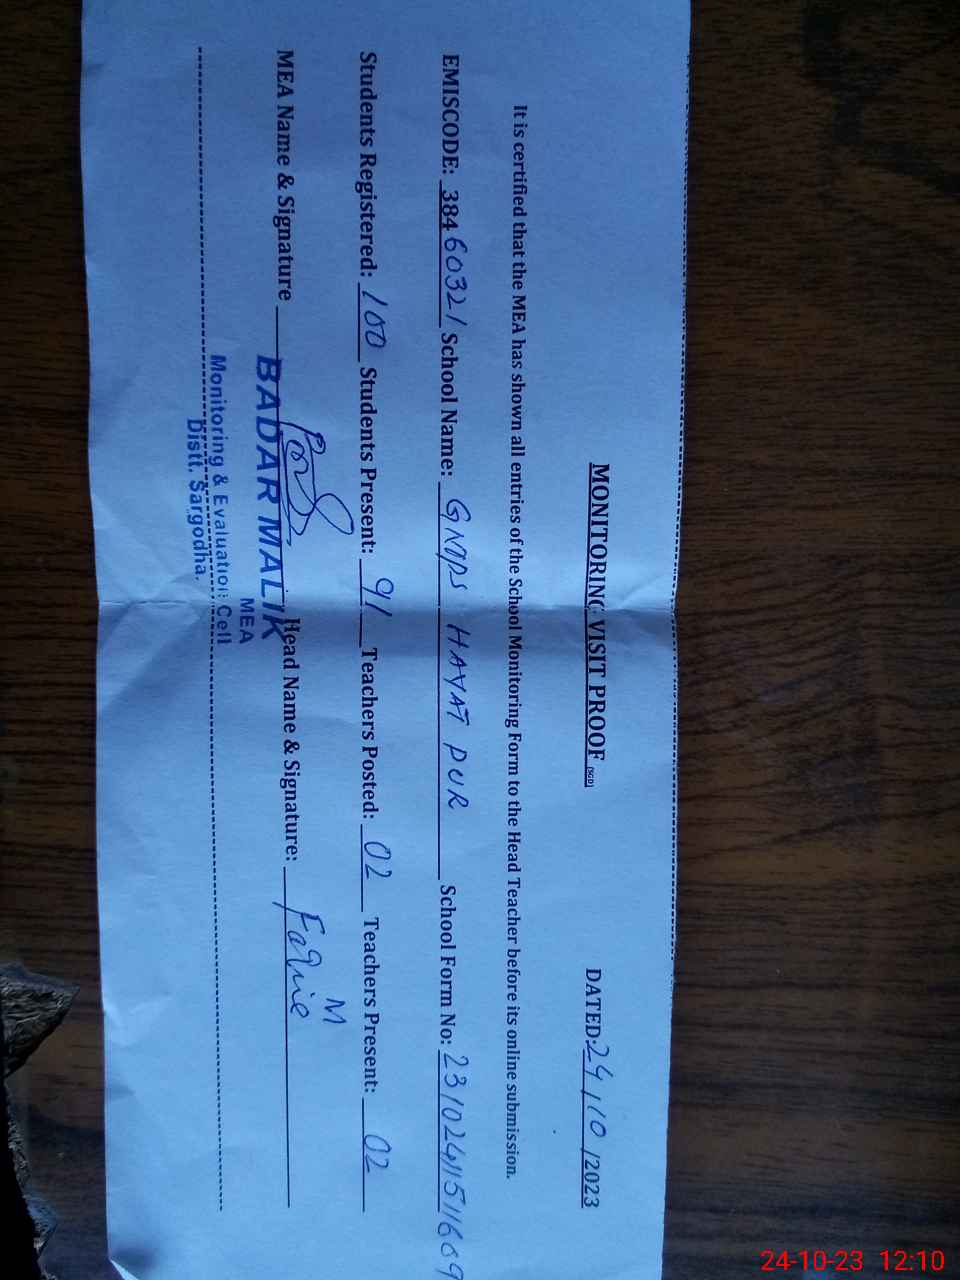 MONITORING VISIT PROOF (SGD) DATED: 24/10/2023
It is certified that the MEA has shown all entries of the School Monitoring Form to the Head Teacher before its online submission.
EMISCODE: 38460321 School Name: GMPS HAYAT PUR School Form No: 23102411511609
Students Registered: 100 Students Present: 91 Teachers Posted: 02 Teachers Present: 02
MEA Name & Signature Head Name & Signature: M
BADAR MALIK
MEA
Monitoring & Evaluation Cell
Distt. Sargodha.
24-10-23 12:10